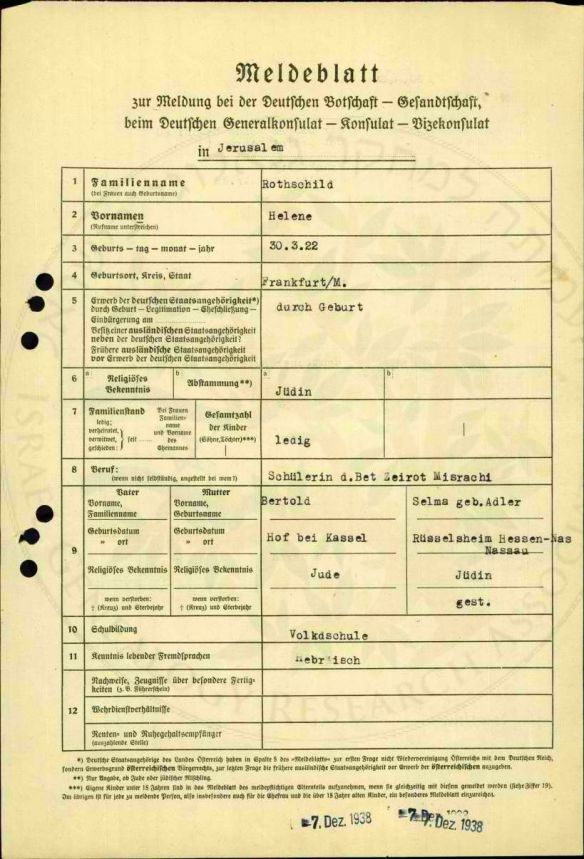 Meldeblatt
zur Meldung bei der Deutschen Botschaft — Gesandtschaft,
beim Deutschen Generalkonsulat — Konsulat — Vizekonsulat
in Jerusalem
1 Familienname
(bei Frauen auch Geburtsname)
Rothschild
2 Vornamen
(Rufname unterstreichen)
Helene
3 Geburts — tag — monat — jahr
30.3.22
4 Geburtsort, Kreis, Staat
Frankfurt/M.
5 Erwerb der deutschen Staatsangehörigkeit*)
durch Geburt — Legitimation — Eheschließung —
Einbürgerung am
Besitz einer ausländischen Staatsangehörigkeit
neben der deutschen Staatsangehörigkeit?
Frühere ausländische Staatsangehörigkeit
vor Erwerb der deutschen Staatsangehörigkeit
durch Geburt
6 a Religiöses
Bekenntnis
b Abstammung**)
a Jüdin
b
7 Familienstand
ledig;
verheiratet,
verwitwet,
geschieden:
} seit
Bei Frauen
Familien-
name
und Vorname
des
Ehemannes
Gesamtzahl
der Kinder
(Söhne, Töchter)***)
ledig
8 Beruf:
(wenn nicht selbständig, angestellt bei wem?)
Schülerin d.Bet Zeirot Misrachi
9
Vater
Vorname,
Familienname
Mutter
Vorname,
Geburtsname
Bertold
Selma geb.Adler
Geburtsdatum
" ort
Geburtsdatum
" ort
Hof bei Kassel
Rüsselsheim Hessen-Nas
Nassau
Religiöses Bekenntnis
Religiöses Bekenntnis
Jude
Jüdin
wenn verstorben:
† (Kreuz) und Sterbejahr
wenn verstorben:
† (Kreuz) und Sterbejahr
gest.
10 Schulbildung
Volkdschule
11 Kenntnis lebender Fremdsprachen
Hebräisch
12
Nachweise, Zeugnisse über besondere Fertig-
keiten (z. B. Führerschein)
Wehrdienstverhältnisse
Renten- und Ruhegehaltsempfänger
(auszahlende Stelle)
*) Deutsche Staatsangehörige des Landes Österreich haben in Spalte 5 des »Meldeblatts« zur ersten Frage nicht Wiedervereinigung Österreichs mit dem Deutschen Reich,
sondern Erwerbsgrund österreichischen Bürgerrechts, zur letzten Frage die frühere ausländische Staatsangehörigkeit vor Erwerb der österreichischen anzugeben.
**) Nur Angabe, ob Jude oder jüdischer Mischling.
***) Eigene Kinder unter 15 Jahren sind in das Meldeblatt des meldepflichtigen Elternteils aufzunehmen, wenn sie gleichzeitig mit diesem gemeldet werden (siehe Ziffer 19).
Im übrigen ist für jede zu meldende Person, also insbesondere auch für die Ehefrau und die über 15 Jahre alten Kinder, ein besonderes Meldeblatt einzureichen.
7. Dez. 1938
7. Dez. 1938